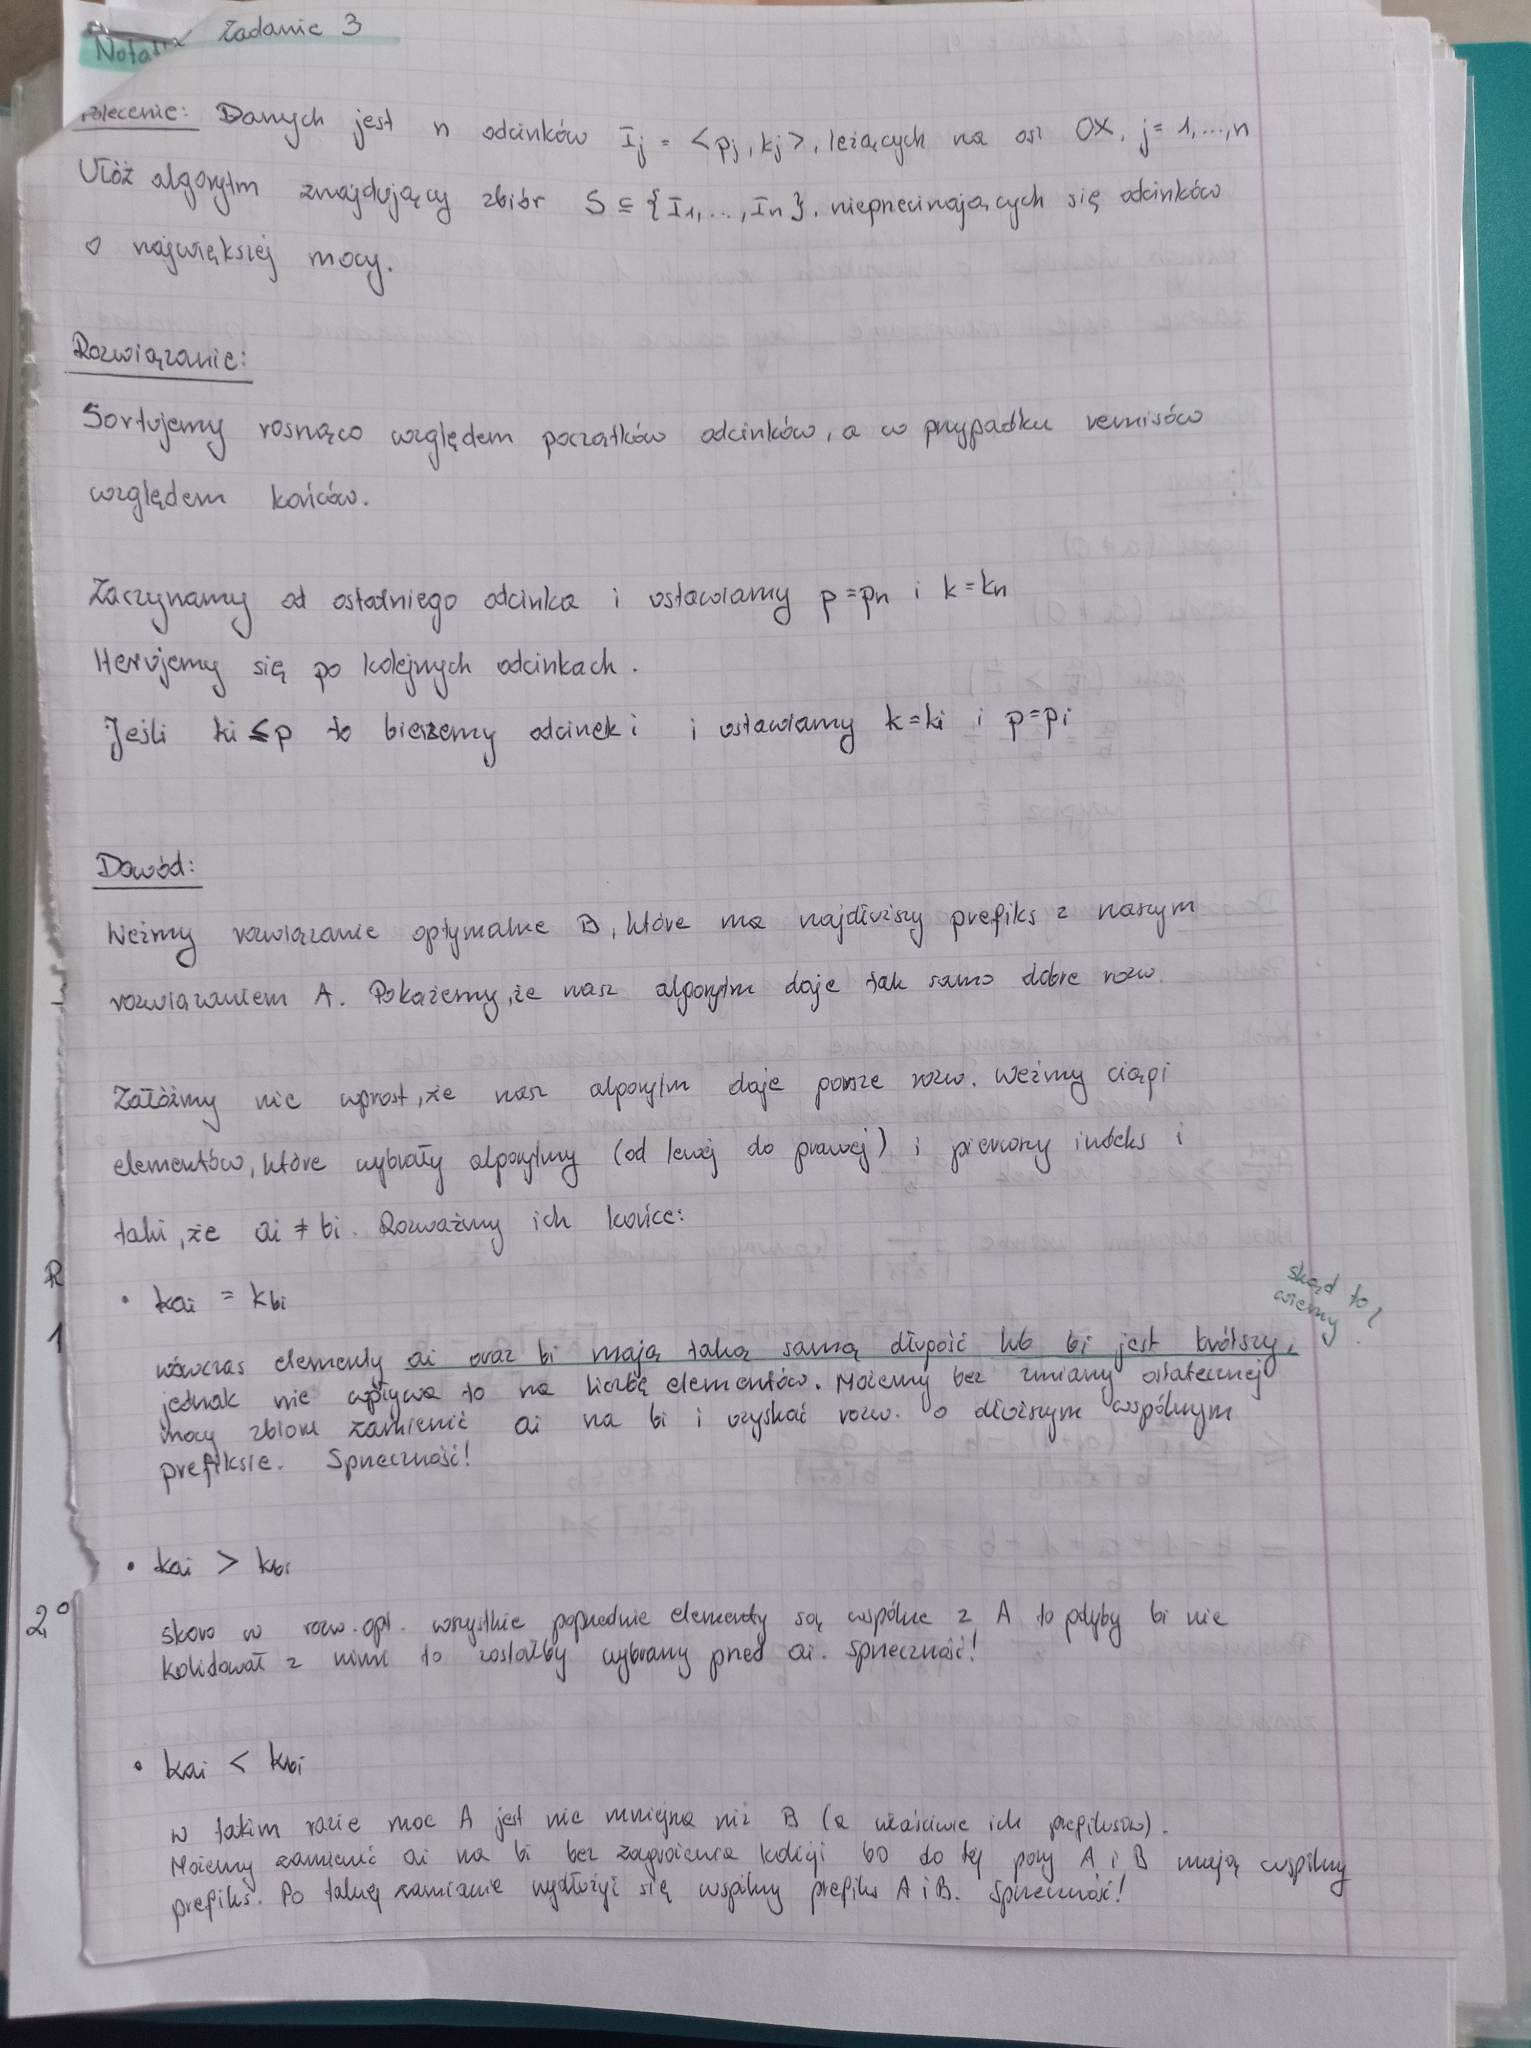 Zadanie 3
Notat
olecenie: Danych jest n odcinków Ij = <pj, kj>, leżących na osi OX, j = 1,...,n
Ułóż algorytm znajdujący zbiór S ⊆ {I1,..., In}, nieprzecinających się odcinków
o największej mocy.
Rozwiązanie:
Sortujemy rosnąco względem początków odcinków, a w przypadku remisów
względem końców.
Zaczynamy od ostatniego odcinka i ustawiamy p = pn i k = kn
Iterujemy się po kolejnych odcinkach.
Jeśli ki ≤ p to bierzemy odcinek i i ustawiamy k = ki i p = pi
Dowód:
Weźmy rozwiązanie optymalne B, które ma najdłuższy prefiks z naszym
rozwiązaniem A. Pokażemy, że nasz algorytm daje tak samo dobre rozw.
Załóżmy nie wprost, że nasz algorytm daje gorsze rozw. Weźmy ciągi
elementów, które wybrały algorytmy (od lewej do prawej) i pierwszy indeks i
taki, że ai ≠ bi. Rozważmy ich końce:
R
1
• kai = kbi
skąd to
wiemy?
wówczas elementy ai oraz bi mają taką samą długość lub bi jest krótszy,
jednak nie wpływa to na liczbę elementów. Możemy bez zmiany ostatecznej
mocy zbioru zamienić ai na bi i uzyskać rozw. o dłuższym wspólnym
prefiksie. Sprzeczność!
• kai > kbi
2°
skoro w rozw. opt. wszystkie poprzednie elementy są wspólne z A to gdyby bi nie
kolidował z nimi to zostałby wybrany przed ai. Sprzeczność!
• kai < kbi
w takim razie moc A jest nie mniejsza niż B (a właściwie ich prefiksów).
Możemy zamienić ai na bi bez zagrożenia kolizji bo do tej pory A i B mają wspólny
prefiks. Po takiej zamianie wydłuży się wspólny prefiks A i B. Sprzeczność!